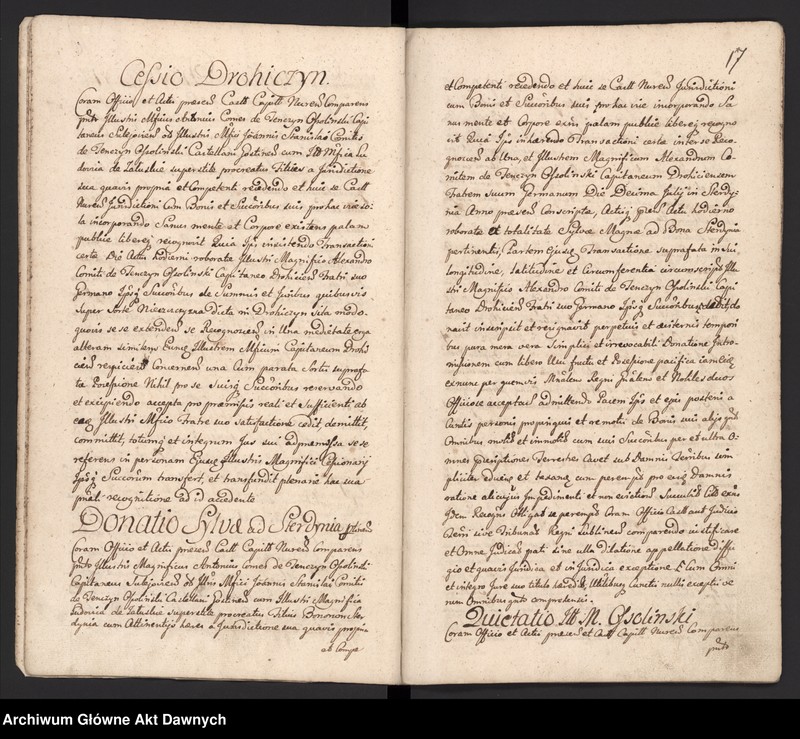 Cessio Drohiczyn.
Coram Officio et Actis præsen Castr Capitl Nuren Comparens
psntr Illustris Mfcus Antonius Comes de Tenczyn Ossolinski Capi
taneus Sulejovien olim Illustris Mfci Joannis Stanislai Comitis
de Tenczyn Ossolinski Castellani Gostinen cum Ill Mfica Lu
dovica de Zaluskie superstite procreatus Filius a Jurisdictione
sua quavis propria et Competenti recedendo et huic se Castr
Nuren Jurisdictioni cum Bonis et Succoribus suis pro hac vice so
la incorporando Sanus mente et Corpore existens palam
publice libereq recognovit Quia Ipse insistendo Transactioni
certæ Die Actus hodierni roboratæ Illustri Magnifico Alexandro
Comiti de Tenczyn Ossolinski Capitaneo Drohicien Fratri suo
Germano Ipsiq Succoribus de Summis et Juribus quibusvis
super Sorte Nieczaczyzna Dicta in Drohiczyn sita modo
quovis se se extenden se Recognoscen in Una medietate erga
alteram similem Eunq Illustrem Mfcum Capitaneum Drohi
cien respicien Concernen una Cum parata Sortis suprafa
tæ Possessione Nihil pro se Suisq Succoribus reservando
et excipiendo accepta pro præmissis reali et Sufficienti ab
eoq Illustri Mfco Fratre suo Satisfactione cedit, demittit,
committit, totumq et integrum Jus sui ad præmissa se se
referens in personam Ejusq Illustris Magnifici Cessionarij
Ipsiq Succorum transfert, et transfundit plenarie hac sua
prnti recognitione ad id accedente
Donatio Sylvæ ad Sterdynia ptinen
Coram Officio et Actis præsen Castr Capitl Nuren Comparens
psntr Illustris Magnificus Antonius Comes de Tenczyn Ossolinski
Capitaneus Sulejovien olim Illris Mfci Joannis Stanislai Comitis
de Tenczyn Ossolinski Castellani Gostinen cum Illustri Magnifica
Ludovica de Zaluskie superstite procreatus Filius Bonorum Ster
dynia cum Attinentijs hæres a Jurisdictione sua quavis propria
et Compe
17
et Competenti recedendo et huic se Castr Nuren Jurisdictioni
cum Bonis et Succoribus suis pro hac vice incorporando Sa
nus mente et Corpore exis palam publice libereq recogno
vit Quia Ipse inhærendo Transactioni certæ inter se Reco
gnoscen ab Una, et Illustrem Magnificum Alexandrum Co
mitem de Tenczyn Ossolinski Capitaneum Drohiciensem
Fratrem suum Germanum Die Decima Julij in Sterdy
nia Anno præsen Conscriptæ, Actisq psen Actu hodierno
roboratæ et totalitate Sylvæ Magnæ ad Bona Sterdynia
pertinentis, Partem Ejusq Transactione suprafata in sui
longitudine, latitudine et Circumferentia circumscriptis Illu
stri Magnifico Alexandro Comiti de Tenczyn Ossolinski Capi
taneo Drohicien Fratri suo Germano Ipsiq Succoribus dedit, do
navit inscripsit et resignavit perpetuis et æviternis tempori
bus pura mera vera Simplici et irrevocabili Donatione Intro
missionem cum libero Usu fructu et Possessione pacifica iam Eiq
exnunc per quemvis Mnlem Regni Gnalem et Nobiles duos
Officiose acceptan admittendo Pacem Ipsi et ejus posteris a
Cunctis personis propinquis et remotis de Bonis suis alijsq gnl
Omnibus motis et immotis cum suis Succoribus per et ultra O
mnes præscriptiones Terrestres Cavet sub Damnis Terribus sim
pliciter
ratione alicujus Impedimenti et non evictionis Succumb
Idem Recogno Obligat se peremptor Coram Officio Castr aut Judicio
Terri sive Tribunalis Regni subsellien comparendo justificare
et Omne Judican pati sine ulla Dilatione appellatione diffu
gio et quavis Juridica et injuridica exceptione Salvum Omni
et integro Jure suo titulo
rum Omnibus psnto competentis.
Quietatio Ill M. Ossolinski
Coram Officio et Actis præsen et Castr Capitl Nuren Comparens
psntr
Archiwum Główne Akt Dawnych